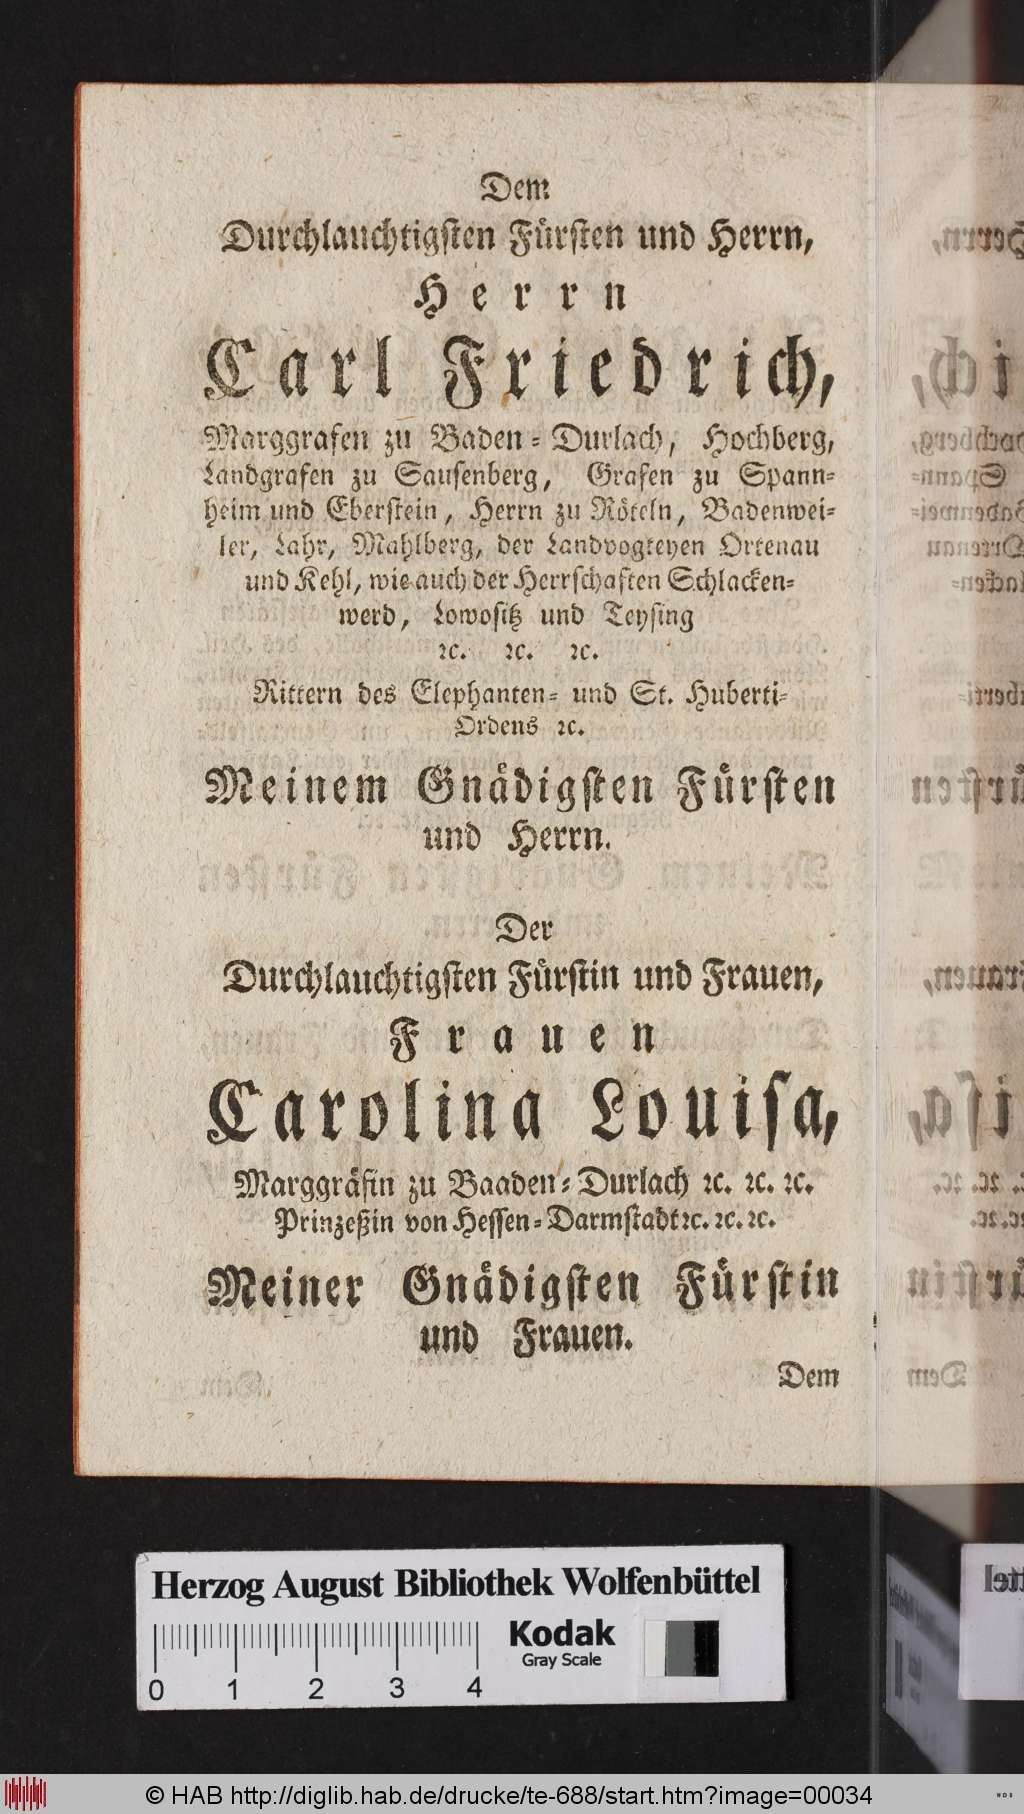 Dem
Durchlauchtigſten Fürſten und Herrn,
Herrn
Carl Friedrich,
Marggrafen zu Baden⸗Durlach, Hochberg,
Landgrafen zu Sauſenberg, Grafen zu Spann⸗
heim und Eberſtein, Herrn zu Röteln, Badenwei⸗
ler, Lahr, Mahlberg, der Landvogteyen Ortenau
und Kehl, wie auch der Herrſchaften Schlacken⸗
werd, Lowoſitz und Teyſing
ꝛc. ꝛc. ꝛc.
Rittern des Elephanten⸗ und St. Huberti⸗
Ordens ꝛc.
Meinem Gnädigſten Fürſten
und Herrn.
Der
Durchlauchtigſten Fürſtin und Frauen,
Frauen
Carolina Louiſa,
Marggräfin zu Baaden⸗Durlach ꝛc. ꝛc. ꝛc.
Prinzeßin von Heſſen⸗Darmſtadt ꝛc. ꝛc. ꝛc.
Meiner Gnädigſten Fürſtin
und Frauen.
Dem
Herzog August Bibliothek Wolfenbüttel
Kodak
Gray Scale
0 1 2 3 4
© HAB http://diglib.hab.de/drucke/te-688/start.htm?image=00034